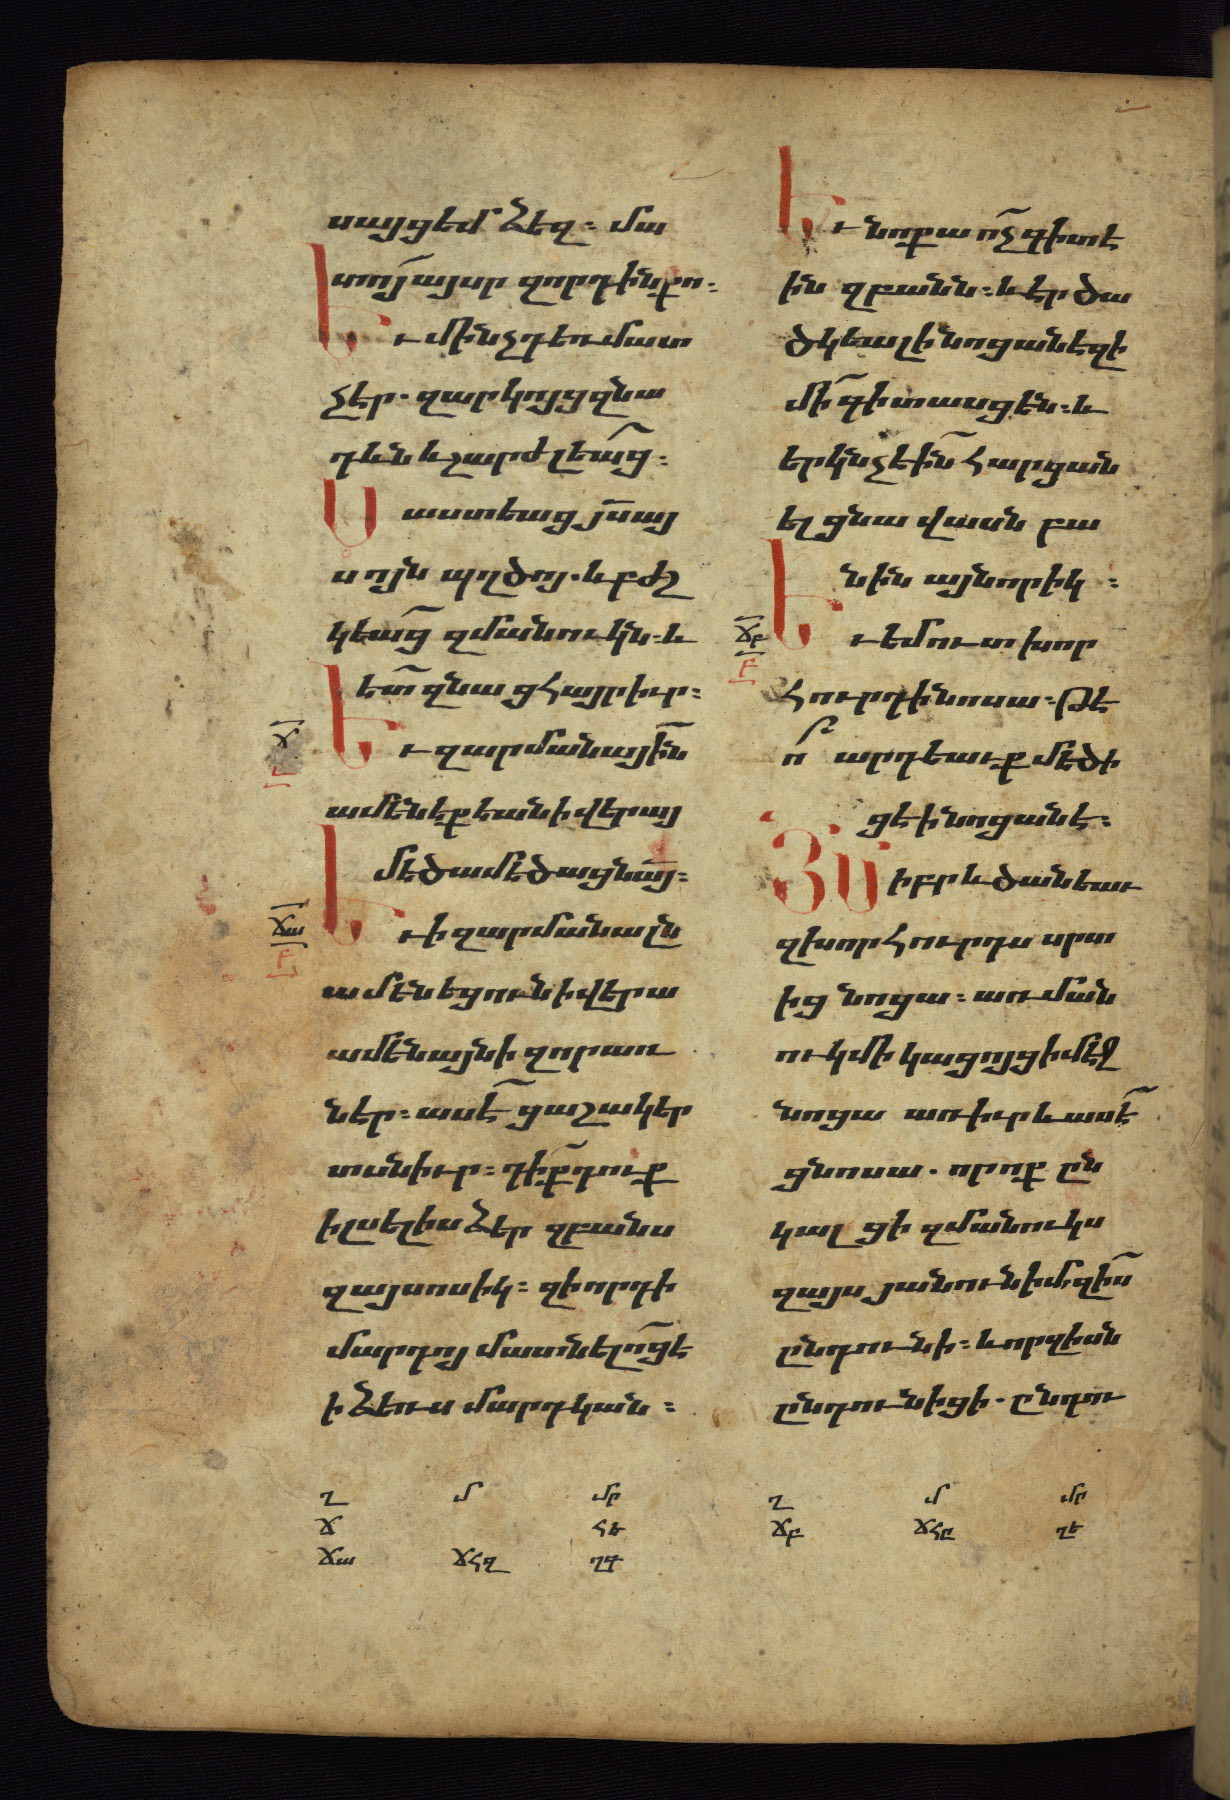 սայցեմ՚ ձեզ։ մա
տո՛ յայսր զորդինքո։
Եւ մինչդեռ մատ
չէր. զարկոյց զնա
դևն և շարժլեա՜ց։
Սաստեաց յ՜ս այ
սոյն պղծոյ. և բժշ
կեա՜ց զմանուկն. և
ետ՜ զնա ցհայրիւր։
Ճ
Եւ զարմանայի՜ն
ամենեքեան ի վերայ
մեծամեծացն ա՜յ։
ՃԱ
Բ
Եւ ի զարմանալն
ամենեցուն ի վերա
ամենայնի զորառ
ներ։ ասէ՜ ցաշակեր
տսնիւր։ դի՜ք դուք
իլսելիս ձեր զբանս
զայսոսիկ։ զի որդի
մարդոյ մատնելո՜ց է
ի ձեռս մարդկան։
Եւ նոքա ո՜չ գիտէ
ին զբանն։ և էր ծա
ծկեալ ի նոցանէ զի
մի՜ գիտասցեն. և
երկնչեի՜ն հարցան
ել ցնա վասն բա
նին այնորիկ։
ՃԲ
Բ
Եւ եմուտ խոր
հուրդ ի նոսա։ թէ
ո՞ արդեաւք մեծի
ցե ի նոցանե։
ՅՍ իբրև ծանեաւ
զխորհուրդս սրտ
ից նոցա։ առ ման
ուկ մի կացոյց ի մէջ
նոցա առ իւր և ասէ՜
ցնոսա. որոք ըն
կալցի զմանուկս
զայս յանուն իմ. զի՜ս
ընդունի։ և որ զիսն
ընդունիցի. ընդու
Ղ Մ ՄԲ
Ճ ՀԵ
ՃԱ ՃՀԶ ՂԳ
Ղ Մ ՄԲ
ՃԲ ՃՀԸ ՂԵ